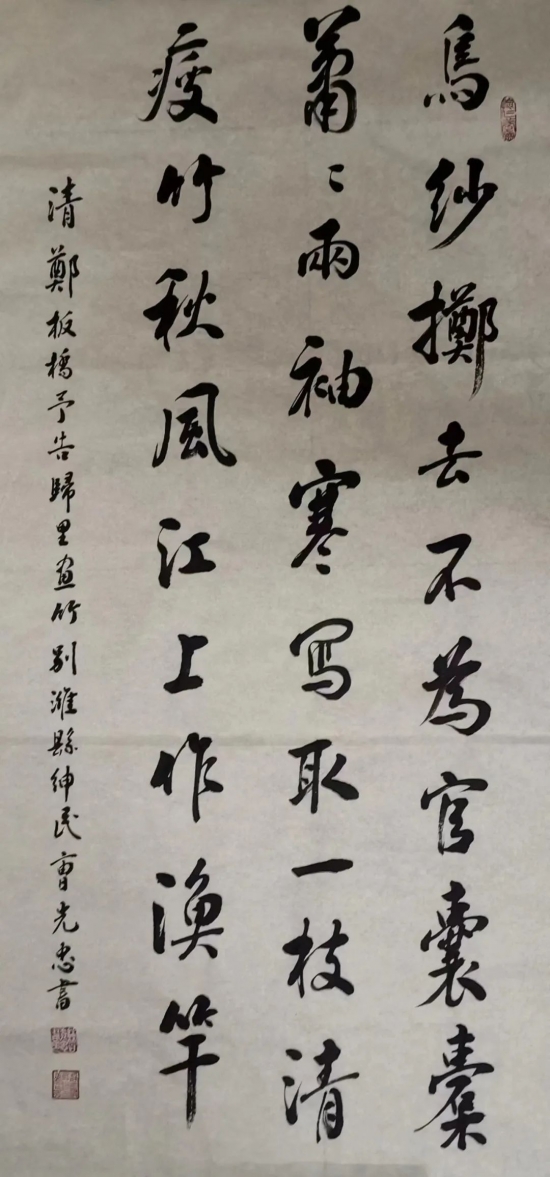 烏紗擲去不為官囊橐
蕭〻兩袖寒寫取一枝清
瘦竹秋風江上作漁竿
清鄭板橋予告歸里畫竹別濰縣紳民曹先忠書